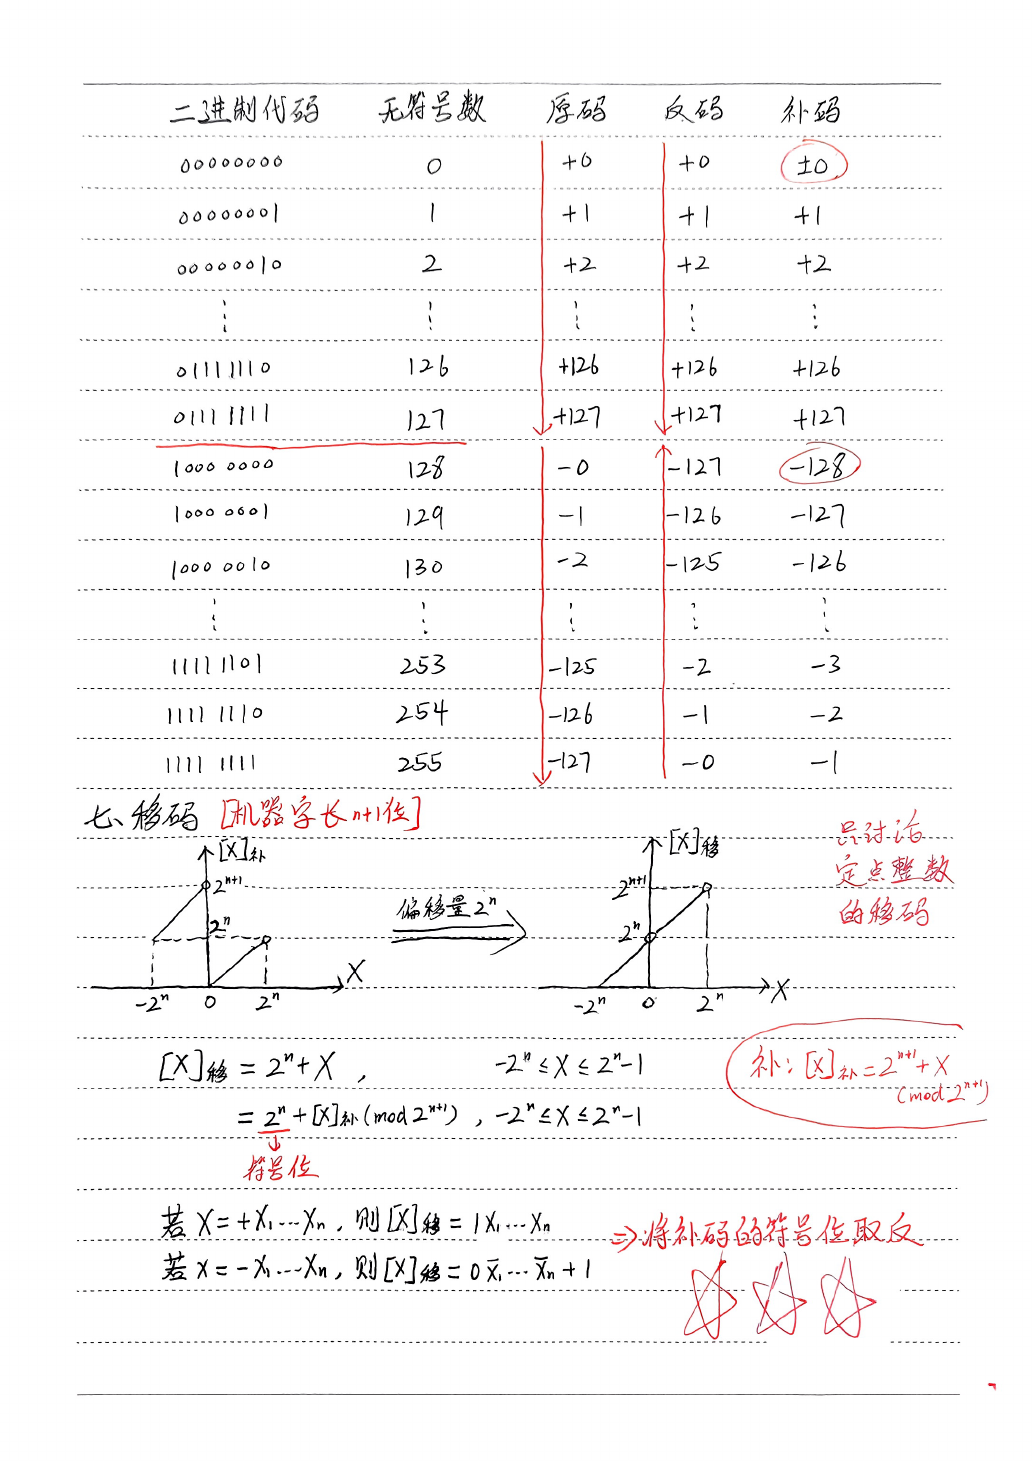 二进制代码 无符号数 原码 反码 补码
00000000 0 +0 +0 ±0
00000001 1 +1 +1 +1
00000010 2 +2 +2 +2
⋮ ⋮ ⋮ ⋮ ⋮
01111110 126 +126 +126 +126
01111111 127 +127 +127 +127
1000 0000 128 -0 -127 -128
1000 0001 129 -1 -126 -127
1000 0010 130 -2 -125 -126
⋮ ⋮ ⋮ ⋮ ⋮
1111 1101 253 -125 -2 -3
1111 1110 254 -126 -1 -2
1111 1111 255 -127 -0 -1
七、移码 [机器字长n+1位]
只讨论
定点整数
的移码
[X]补
2ⁿ⁺¹
2ⁿ
X
-2ⁿ 0 2ⁿ
偏移量2ⁿ
[X]移
2ⁿ⁺¹
2ⁿ
X
-2ⁿ 0 2ⁿ
[X]移 = 2ⁿ + X , -2ⁿ ≤ X ≤ 2ⁿ-1
= 2ⁿ + [X]补 (mod 2ⁿ⁺¹) , -2ⁿ ≤ X ≤ 2ⁿ-1
↓
符号位
补: [X]补 = 2ⁿ⁺¹ + X
(mod 2ⁿ⁺¹)
若 X = +X₁…Xₙ, 则[X]移 = 1X₁…Xₙ
若 X = -X₁…Xₙ, 则[X]移 = 0X̄₁…X̄ₙ + 1
⇒ 将补码的符号位取反